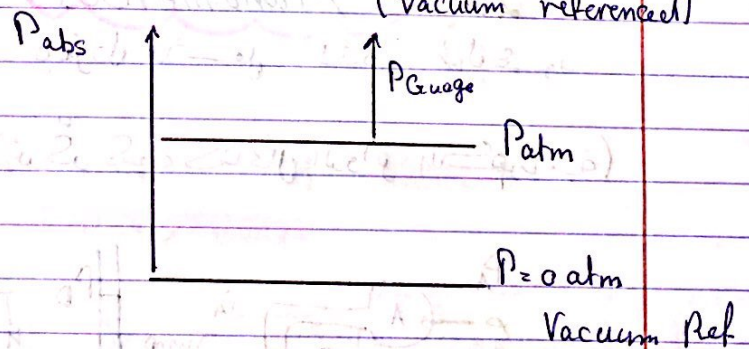 (Vacuum referenced)
Pabs
PGuage
Patm
P=0 atm
Vacuum Ref